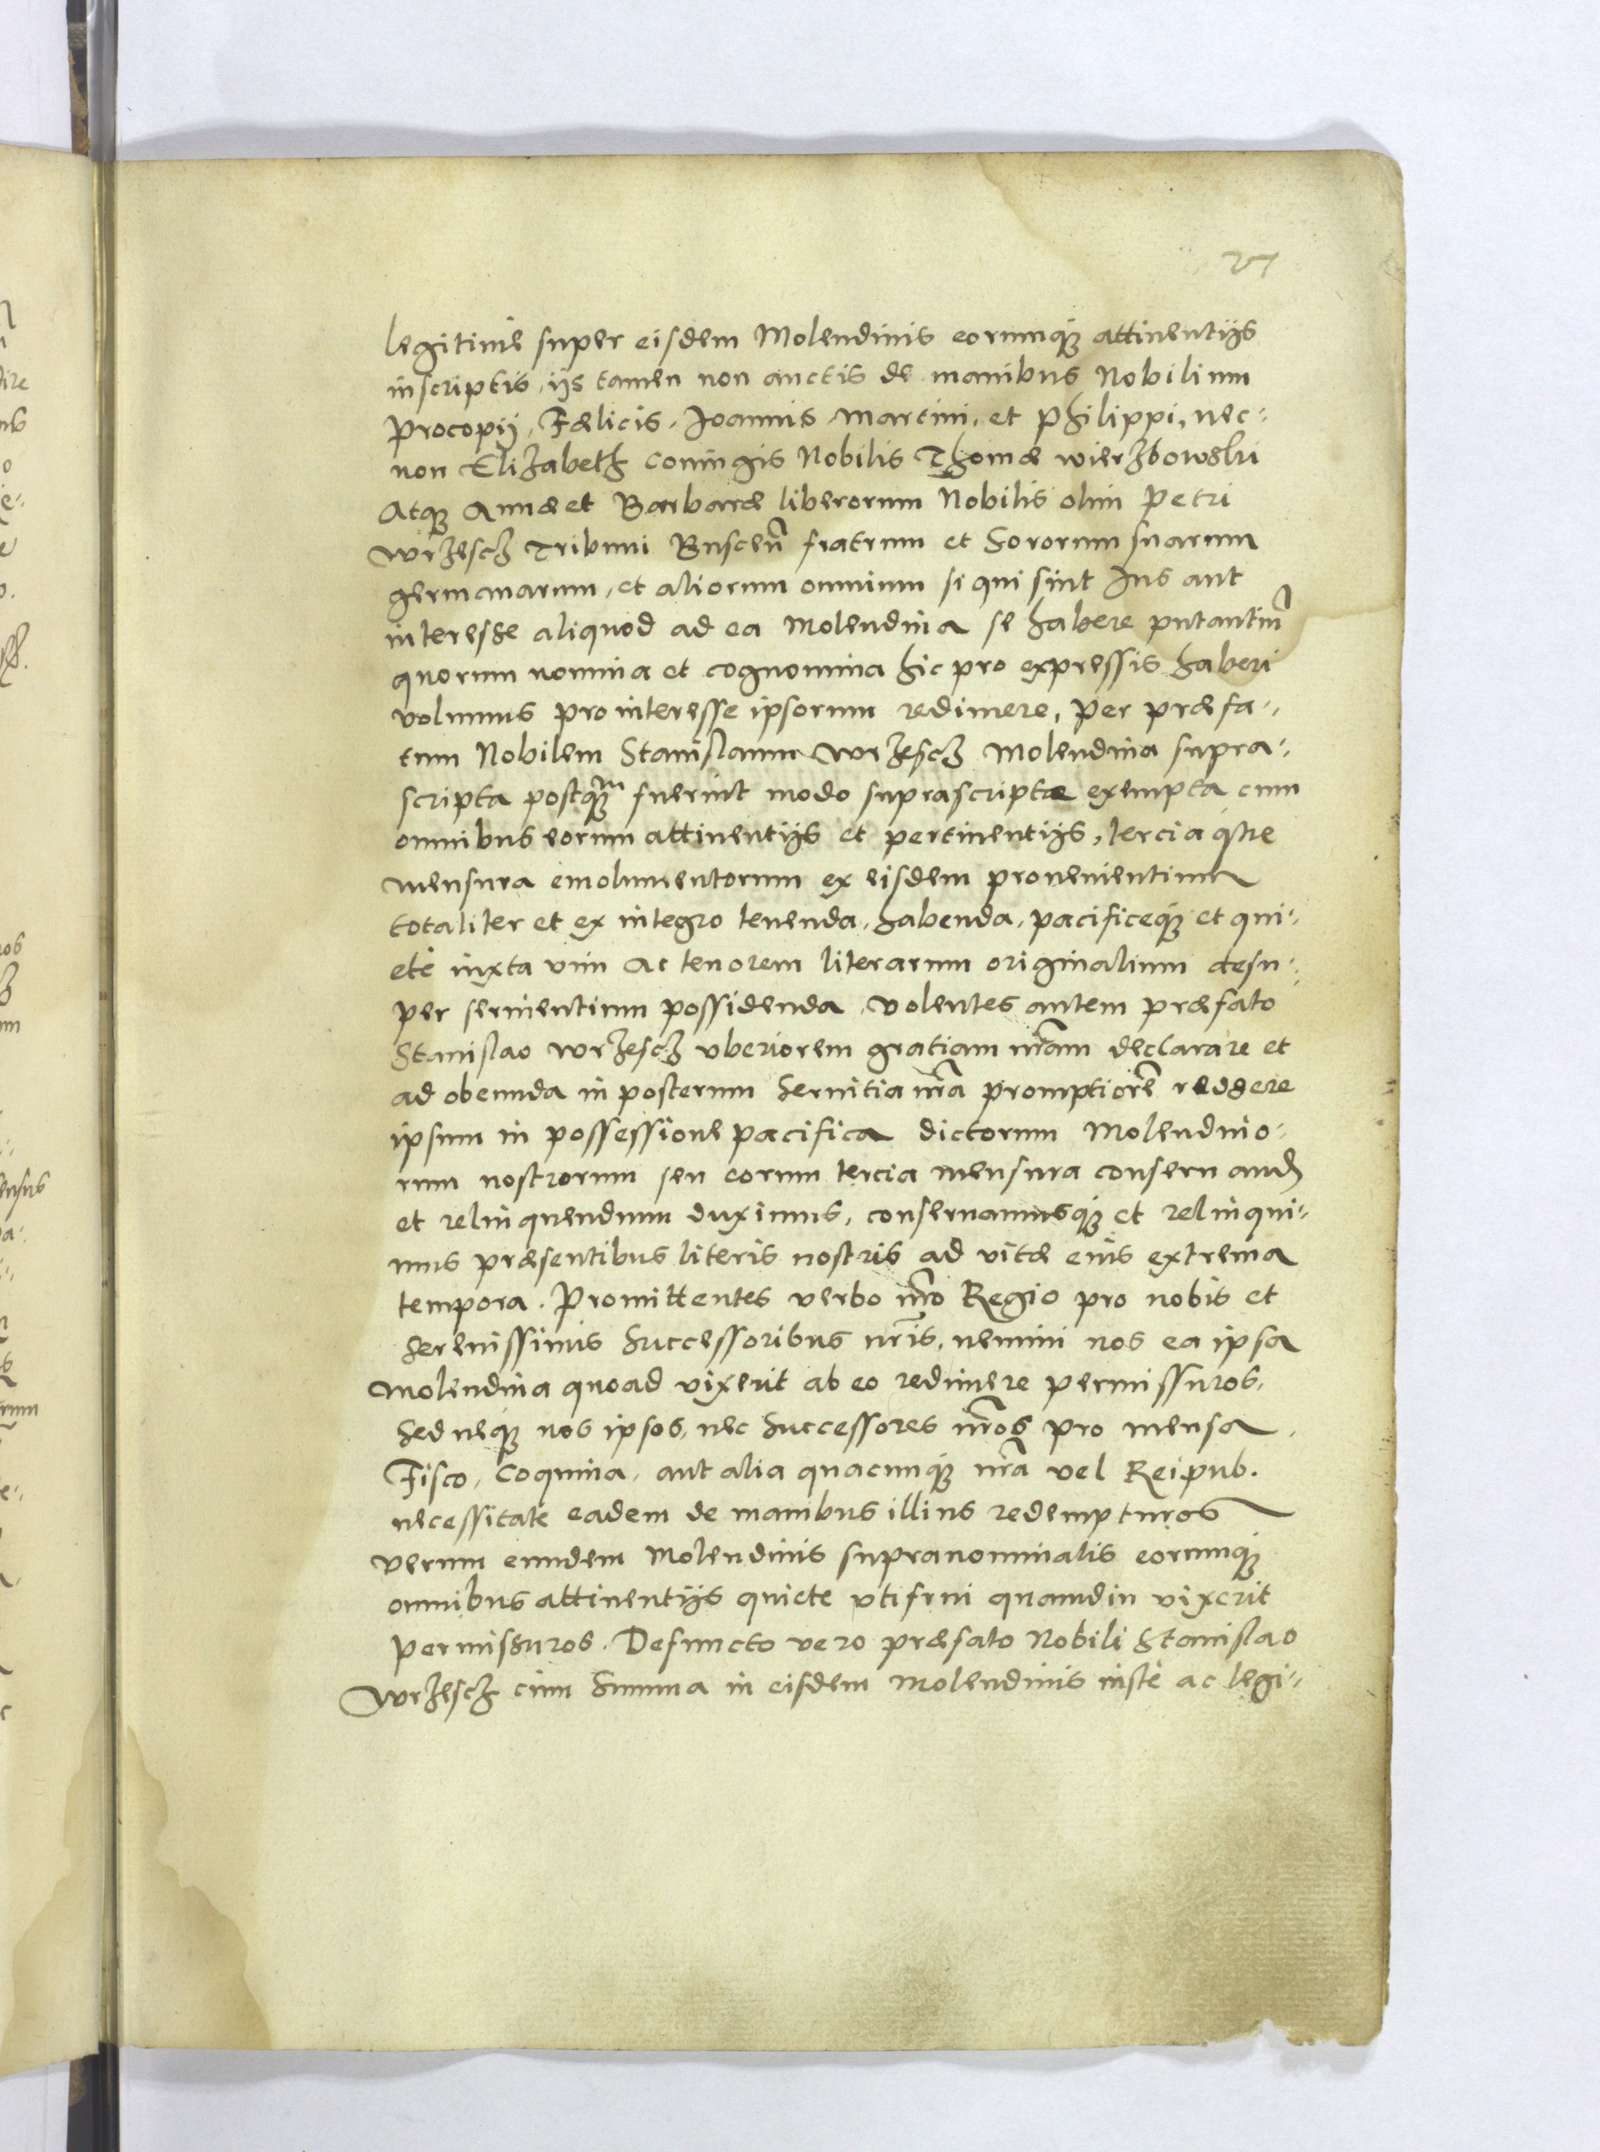 27
legitime super eisdem Molendinis eorumq; attinentijs
inscriptis, ijs tamen non auctis de manibus Nobilium
Procopij, Fœlicis, Joannis Martini, et Philippi, nec-
non Elizabeth coniugis Nobilis Thomæ wierzbowski
Atq; Annæ et Barbaræ liberorum Nobilis olim Petri
wrzescz Tribuni Buscen̄ fratrum et Sororum suarum
germanarum, et aliorum omnium si qui sint Jus aut
interesse aliquod ad ea Molendina se habere putantiū
quorum nomina et cognomina hic pro expressis haberi
volumus pro interesse ipsorum redimere, Per præfa-
tum Nobilem Stanislaum wrzescz Molendina supra-
scripta postq;m fuerint modo suprascripto exempta cum
omnibus eorum attinentijs et pertinentijs, terciaq;ue
mensura emolumentorum ex eisdem provenientium
totaliter et ex integro tenenda, habenda, pacificeq; et qui-
etè iuxta vim ac tenorem literarum originalium desu-
per servientium possidenda, volentes autem præfato
Stanislao wrzescz vberiorem gratiam nr̄am declarare et
ad obeunda in posterum Servitia nr̄a promptiorē reddere
ipsum in possessione pacifica dictorum Molendino-
rum nostrorum seu eorum tercia mensura conservand
et relinquendum duximus, conservamusq; et relinqui-
mus præsentibus literis nostris ad vitæ eius extrema
tempora. Promittentes verbo nr̄o Regio pro nobis et
Serenissimis Successoribus nr̄is, nemini nos ea ipsa
Molendina quoad vixerit ab eo redimere permissuros,
Sed neq; nos ipsos, nec Successores nr̄os pro mensa,
Fisco, Coquina, aut alia quacunq; nr̄a vel Reipub.
necessitate eadem de manibus illius redempturos
verum eundem Molendinis supranominatis eorumq;
omnibus attinentijs quiete vtifrui quamdiu vixerit
permissuros. Defuncto vero præfato Nobili Stanislao
Wrzescz cum Summa in eisdem Molendinis iuste ac legi-